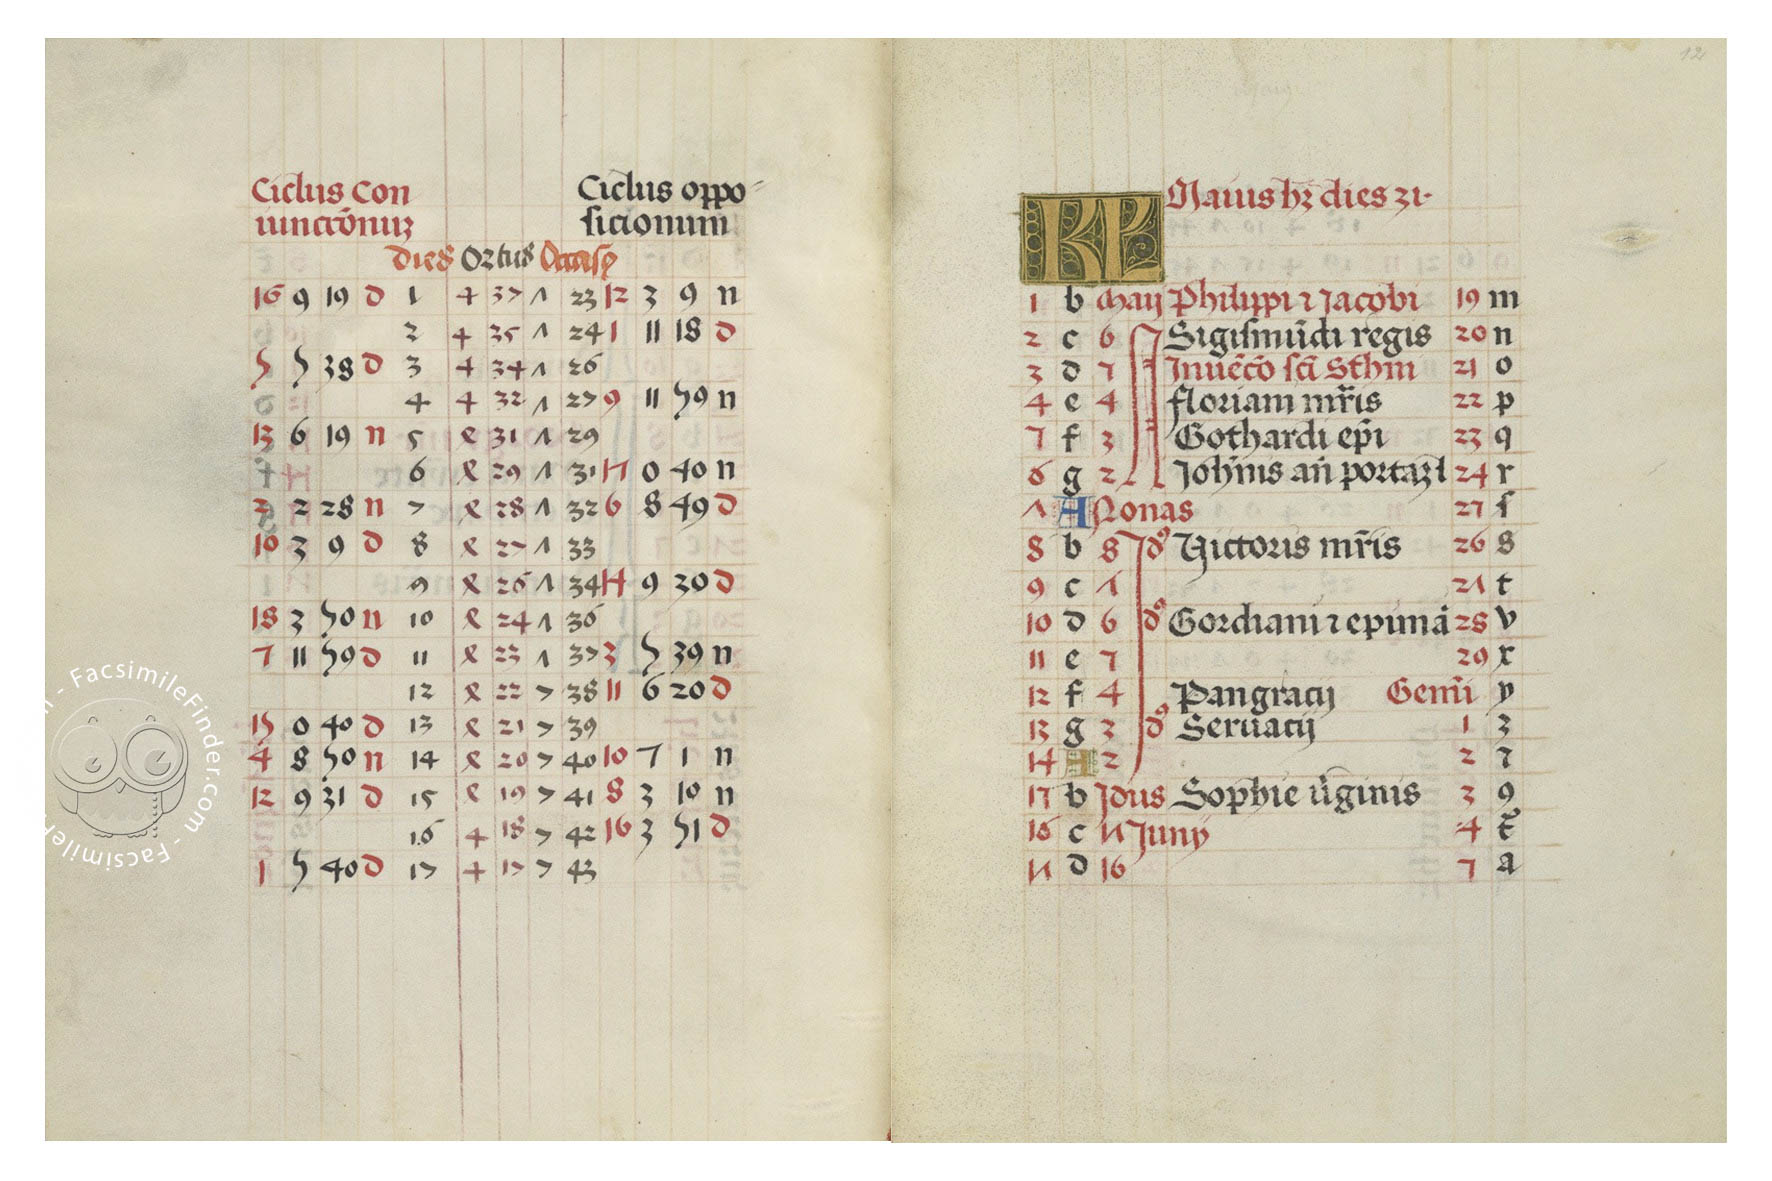 Ciclus Con
iunctōnuʒ
Ciclus oppo=
sicionum
dies Ortus Occasꝰ
16 9 19 d 1 4 37 Λ 23 12 3 9 n
2 4 35 Λ 24 1 11 18 d
5 5 38 d 3 4 34 Λ 26
4 4 32 Λ 27 9 11 59 n
13 6 19 n 5 4 31 Λ 29
6 4 29 Λ 31 17 0 40 n
2 2 28 n 7 4 28 Λ 32 6 8 49 d
10 3 9 d 8 4 27 Λ 33
9 4 26 Λ 34 14 9 30 d
18 3 50 n 10 4 24 Λ 36
7 11 59 d 11 4 23 Λ 37 3 5 39 n
12 4 22 7 38 11 6 20 d
15 0 40 d 13 4 21 7 39
4 8 50 n 14 4 20 7 40 10 7 1 n
12 9 31 d 15 4 19 7 41 8 3 10 n
16 4 18 7 42 16 3 51 d
1 5 40 d 17 4 17 7 43
12
KL Maius hʒ dies 31·
1 b Maij Philippi ⁊ Jacobi 19 m
2 c 6 Sigismūdi regis 20 n
3 d 7 Inuēcō scē 21 o
4 e 4 floriani mr̄is 22 p
7 f 3 Gothardi ep̄i 23 q
6 g 2 Joh̄nis an̄ portaʒl 24 r
Λ A Nonas 27 ſ
8 b 8 dꝰ Victoris mr̄is 26 s
9 c Λ 2Λ t
10 d 6 dꝰ Gordiani ⁊ epimā 28 v
11 e 7 29 x
12 f 4 Pangracij Gemīi y
13 g 3 dꝰ Seruacij 1 z
14 A 2 2 ⁊
17 b Idus Sophie v̄ginis 3 9
16 c 1Λ Junij 4 t̄
1Λ d 16 7 a
FacsimileFinder.com